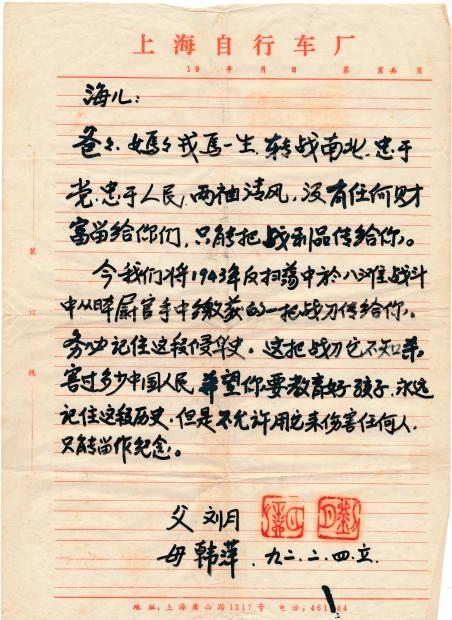 上海自行车厂
19 年 月 日 第 页共 页
海儿:
爸々、妈々戎马一生,转战南北,忠于
党,忠于人民,两袖清风,没有任何财
富留给你们,只能把战利品传给你。
今我们将1943年反扫荡中於八滩战斗
中从 官手中缴获的一把战刀传给你。
务必记住这段侵华史。这把战刀它不知杀
害过多少中国人民,希望你要教育好孩子,永远
记住这段历史,但是不允许用它来伤害任何人,
只能留作纪念。
父 刘月
母 韩萍 九二.二.四.立.
装
订
线
地址:上海唐山路1217号 电话:461 44